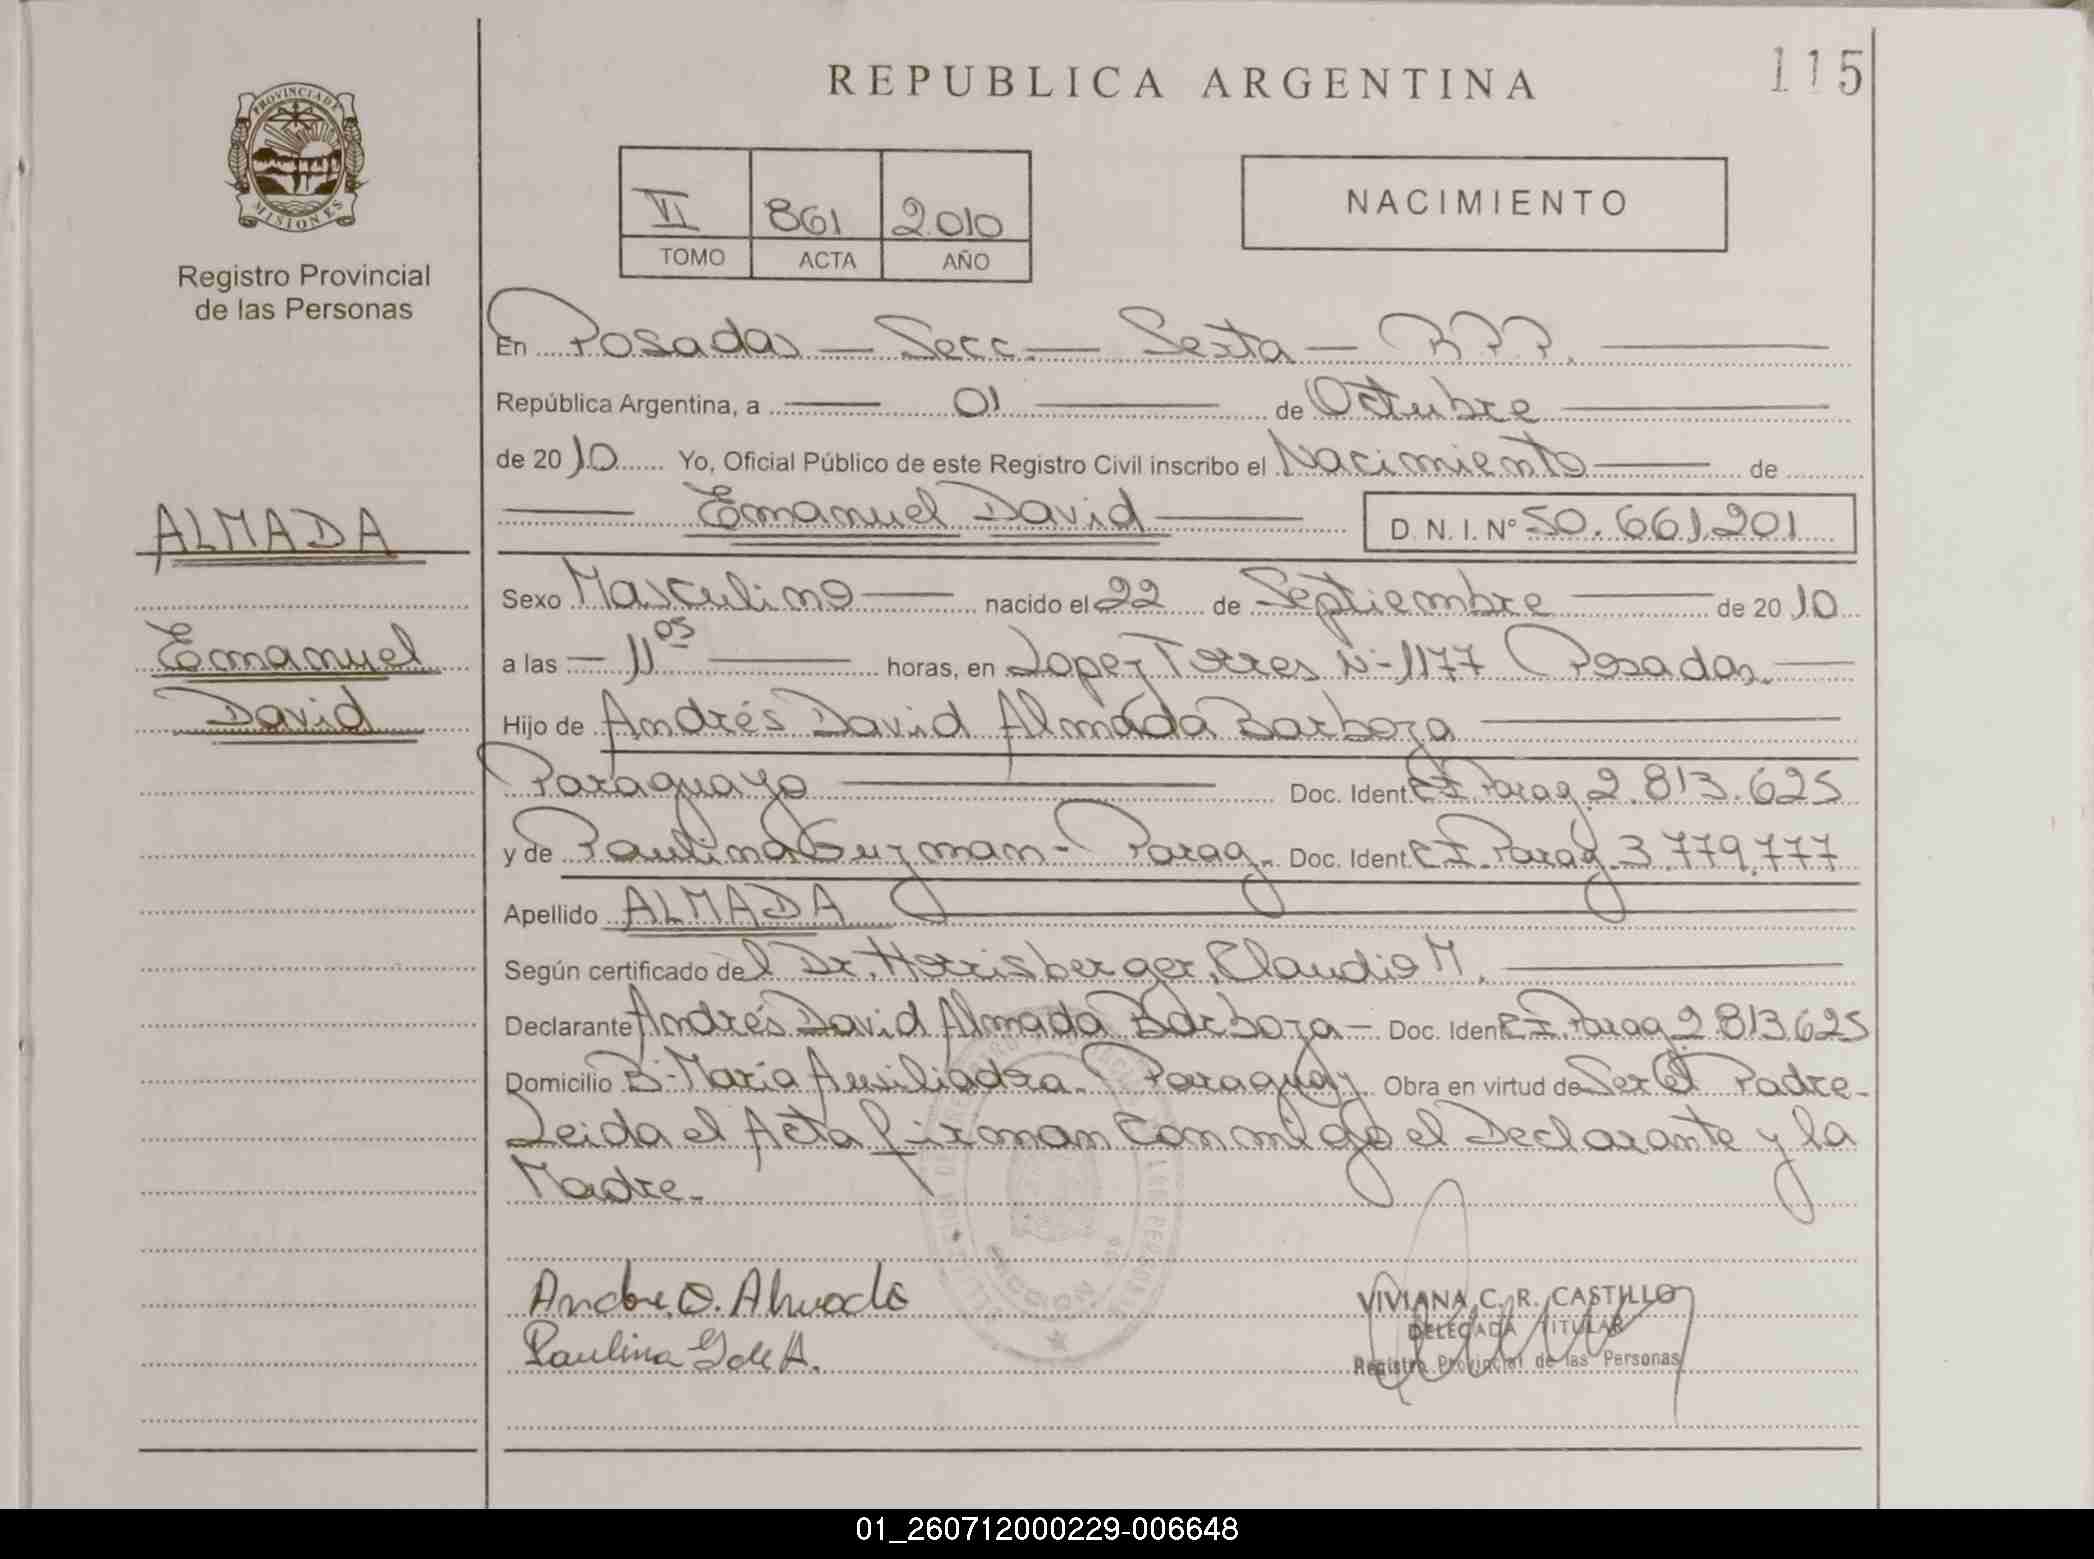 REPUBLICA ARGENTINA
115
PROVINCIA DE
MISIONES
Registro Provincial
de las Personas
VI 861 2010
TOMO ACTA AÑO
NACIMIENTO
En Posadas — Secc. — Sexta — R.P.P.
República Argentina, a — 01 — de Octubre
de 2010 Yo, Oficial Público de este Registro Civil inscribo el Nacimiento — de
— Emanuel David — D.N.I. Nº 50.661.201
ALMADA
Emanuel
David
Sexo Masculino — nacido el 22 de Septiembre — de 2010
a las — 11 05 — horas, en Lopez Torres N-1177 Posadas.
Hijo de Andrés David Almada Barboza
Paraguayo — Doc. Ident. C.I. Parag. 2.813.625
y de Paulina Guzman - Parag. Doc. Ident. C.I. Parag. 3.779.777
Apellido ALMADA
Según certificado del Dr. Horrisberger, Claudio M.
Declarante Andrés David Almada Barboza — Doc. Ident. C.I. Parag 2.813.625
Domicilio B- María Auxiliadora - Paraguay. Obra en virtud de Ser el Padre-
Leida el Acta firman Conmigo el Declarante y la
Madre-
Andre. D. Almada
Paulina G de A.
VIVIANA C. R. CASTILLO
DELEGADA TITULAR
Registro Provincial de las Personas
01_260712000229-006648